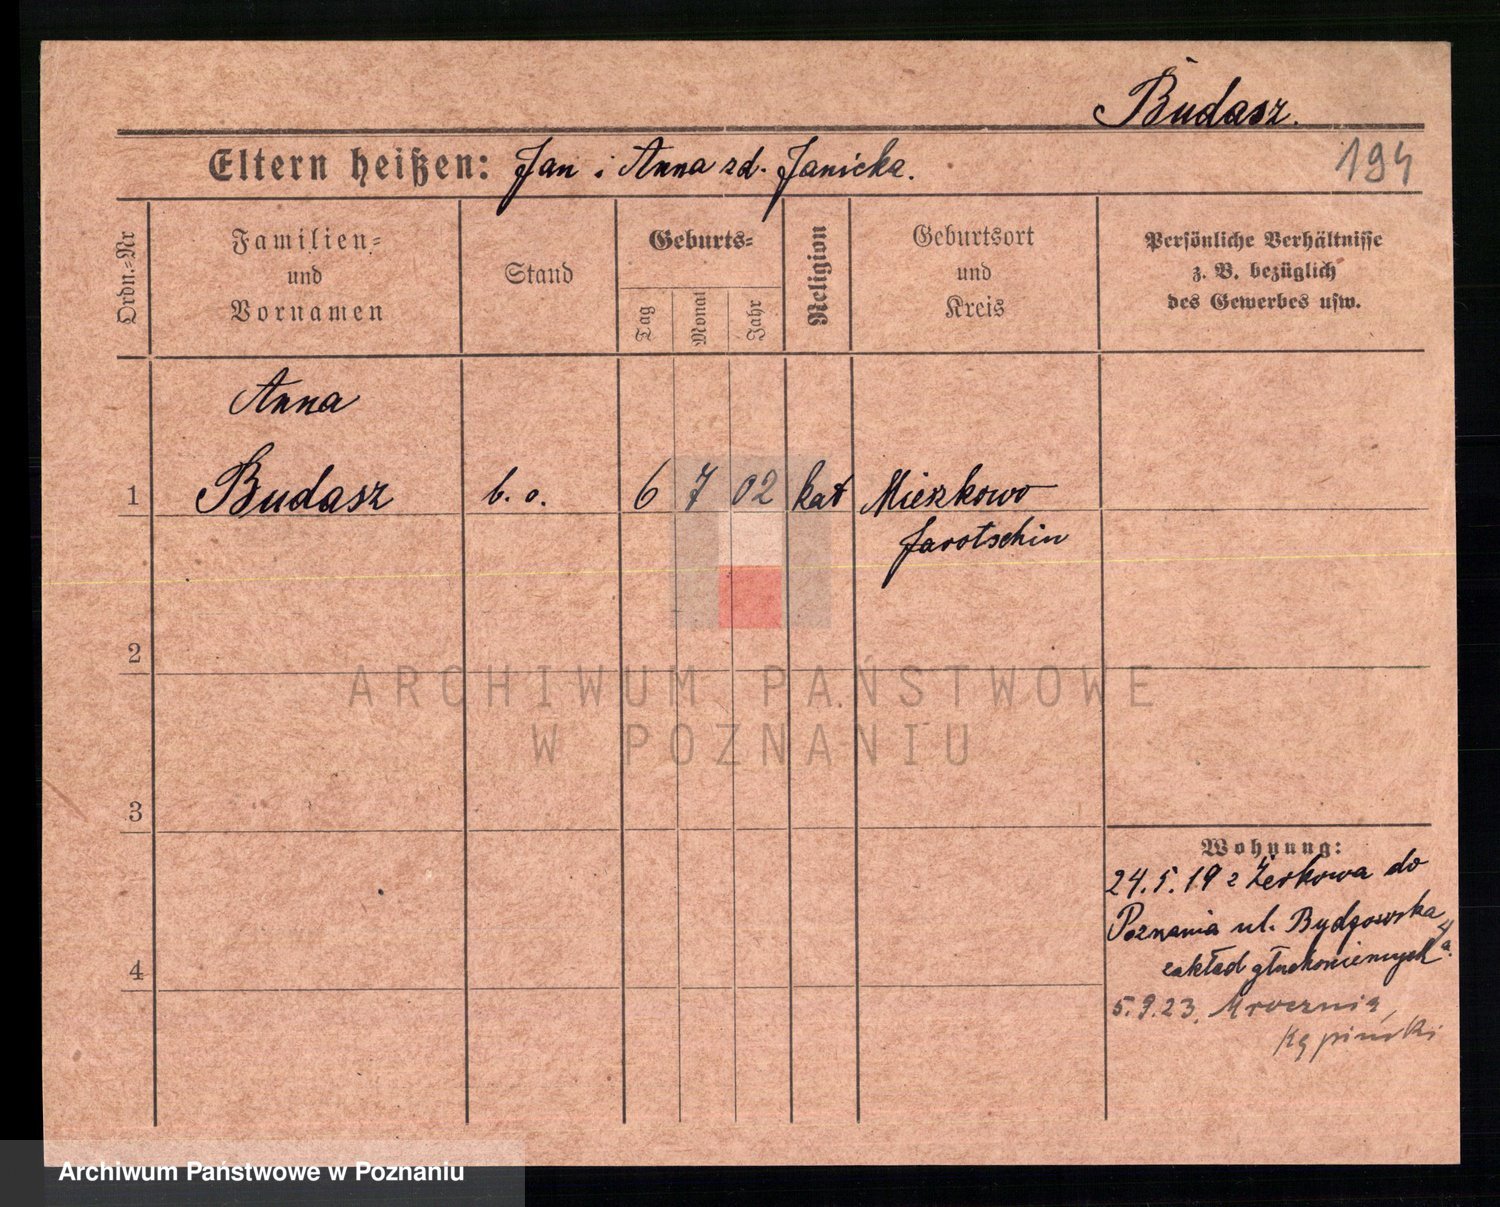 Budasz.
194
Eltern heißen: Jan i Anna zd. Janicka.
Ordn.=Nr
Familien=
und
Vornamen
Stand
Geburts=
Tag
Monat
Jahr
Religion
Geburtsort
und
Kreis
Persönliche Verhältnisse
z. B. bezüglich
des Gewerbes usw.
Anna
1 Budasz b. o. 6 7 02 kat Mieszkowo
Jarotschin
2
ARCHIWUM PAŃSTWOWE
W POZNANIU
3
Wohnung:
24.5.19 z Żerkowa do
Poznania ul. Bydgowska
zakład głuchoniemych
4
5.9.23. Mrocznia,
Kępiński
Archiwum Państwowe w Poznaniu